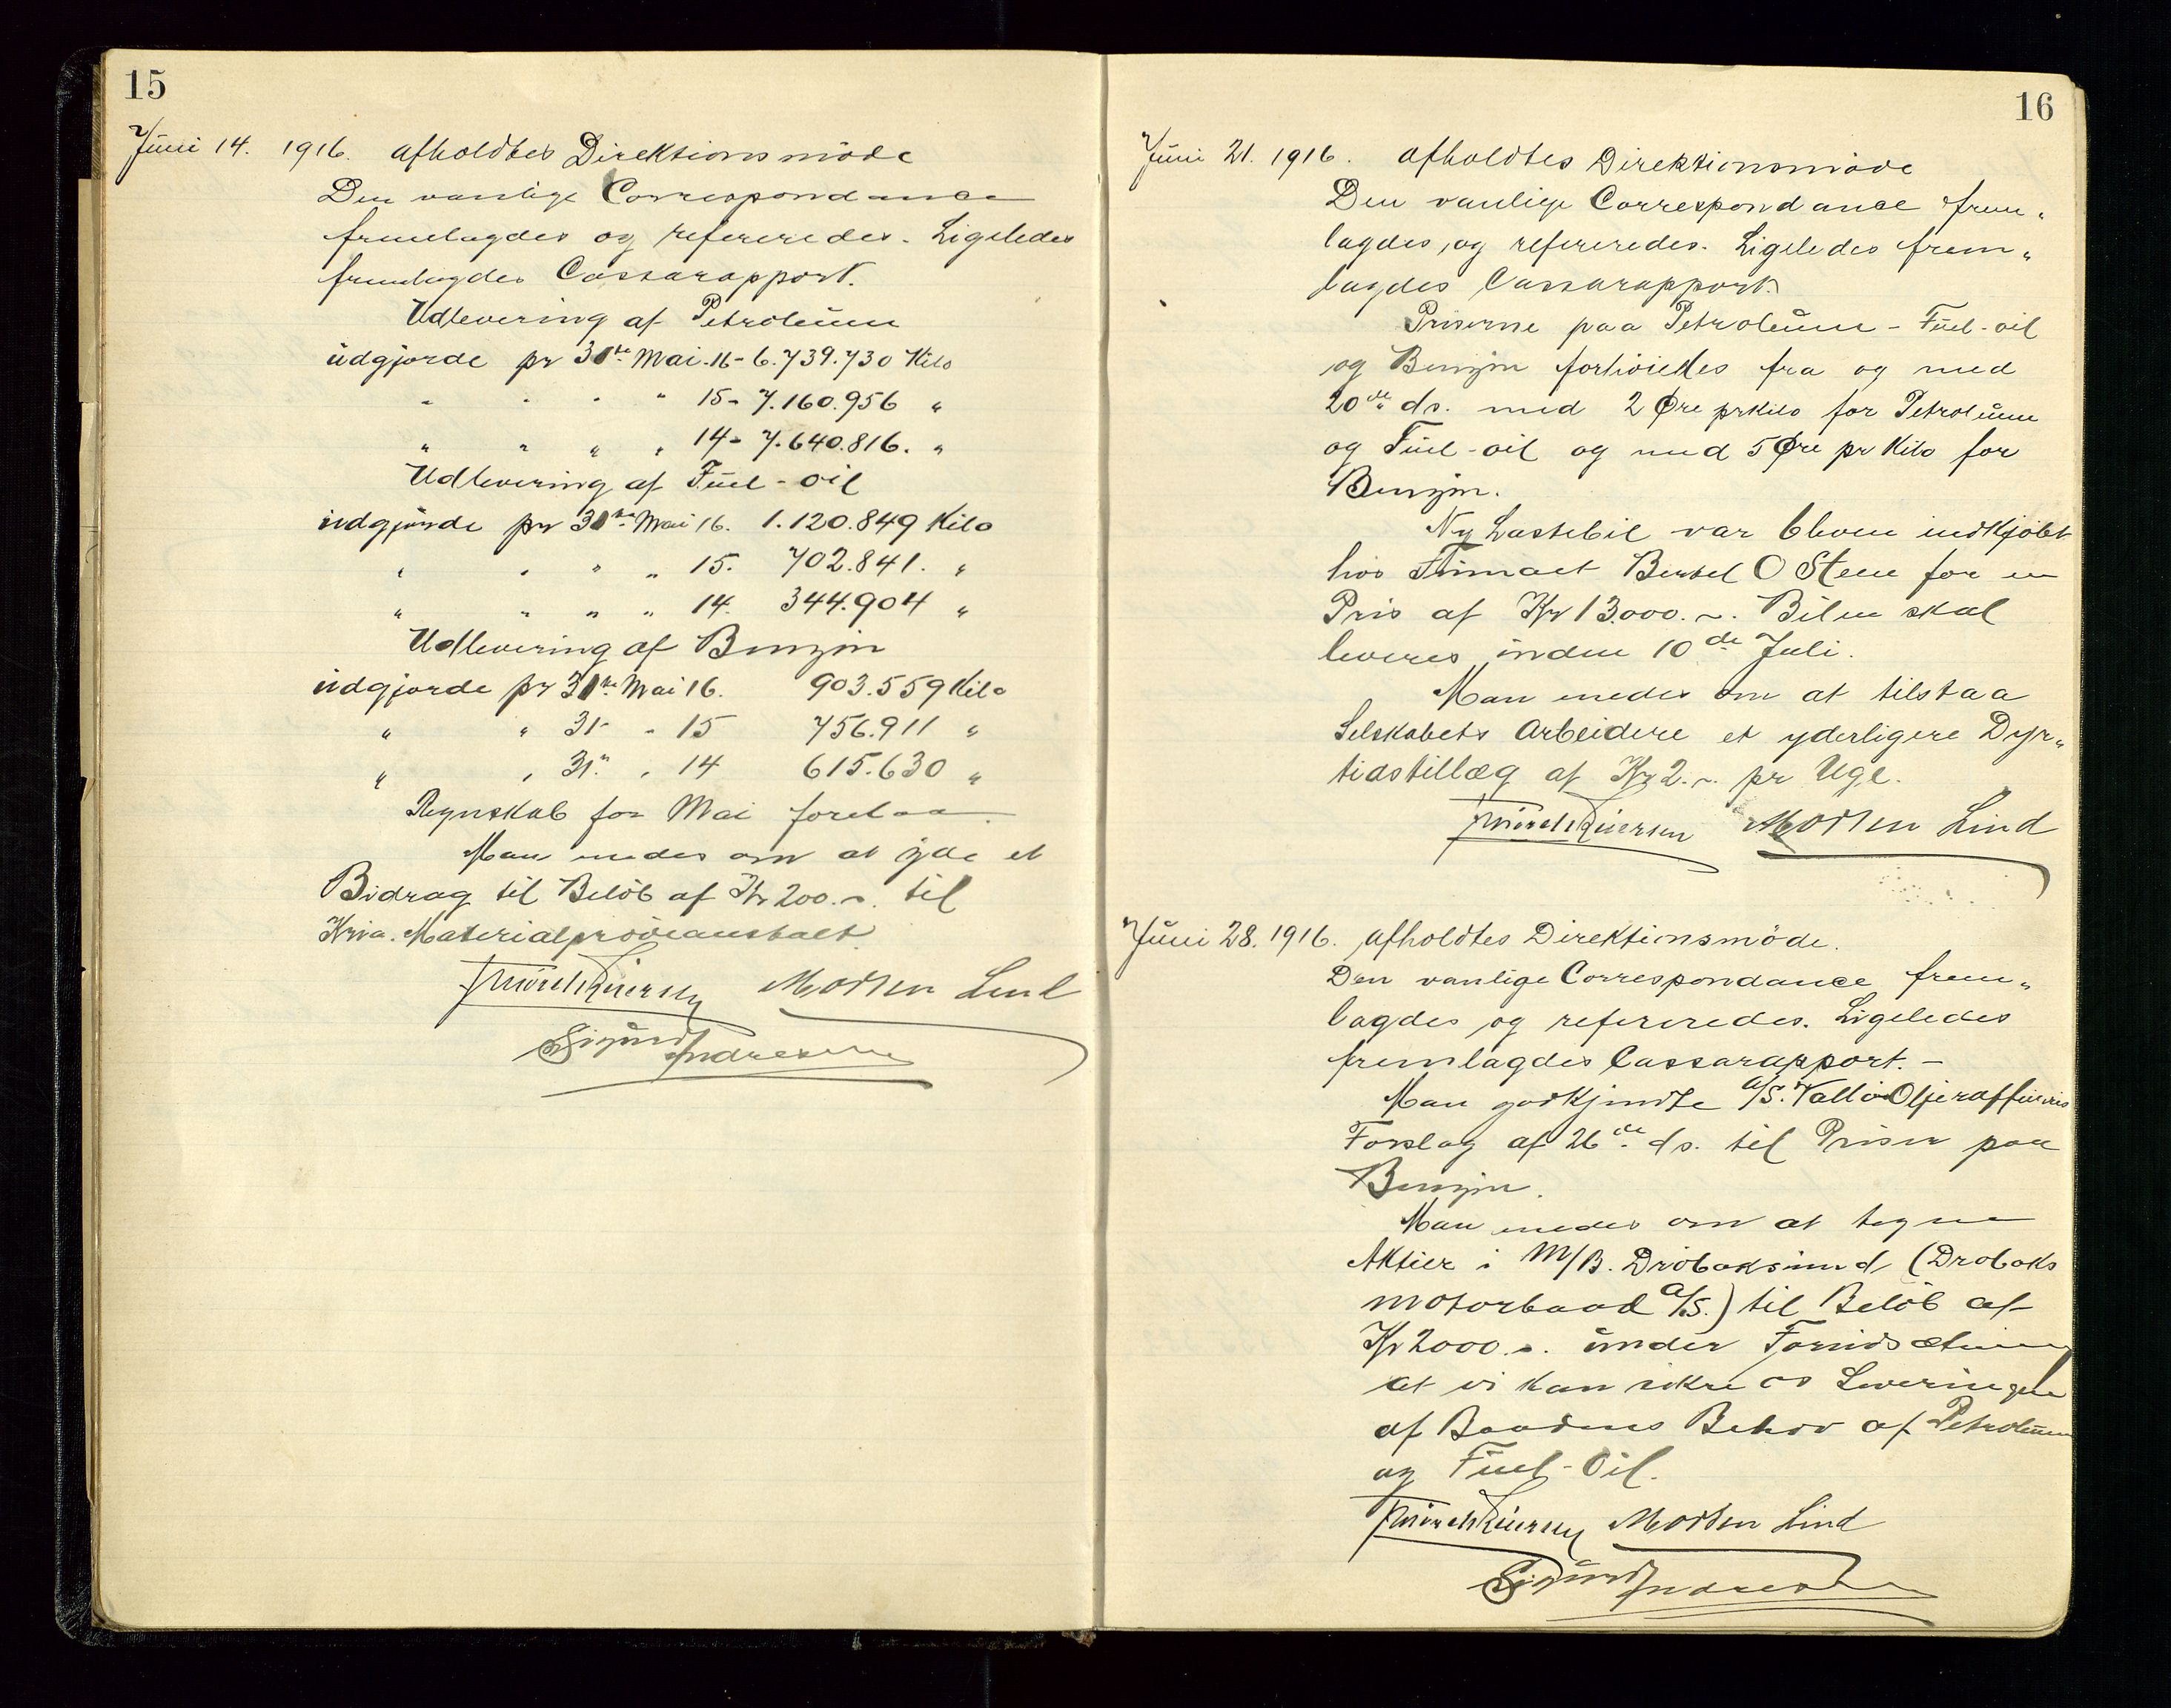 15
Juni 14. 1916. afholdtes Direktionsmöde
Den vanlige Correspondance
fremlagdes og refereredes. Ligeledes
fremlagdes Cassarapport.
Udlevering af Petroleum
udgjorde pr 31te Mai. 16 - 6.739.730 Kilo
" " " " 15 - 7.160.956 "
" " " " 14 - 7.640.816. "
Udlevering af Fuel-oil
udgjorde pr 31te Mai 16. 1.120.849 Kilo
" " " " 15. 702.841. "
" " " " 14. 344.904 "
Udlevering af Benzin
udgjorde pr 31te Mai 16. 903.559 Kilo
" " 31 - " 15 756.911 "
" " 31 " " 14 615.630 "
Regnskab for Mai forelaa.
Man enedes om at yde et
Bidrag til Belöb af Kr 200.-. til
Kria. Materialprøveanstalt.
Morten Lind
Sigurd Andresen
16
Juni 21. 1916. afholdtes Direktionsmöde
Den vanlige Correspondance frem„
lagdes og refereredes. Ligeledes frem„
lagdes Cassarapport.
Priserne paa Petroleum - Fuel-oil
og Benzin forhöiedes fra og med
20de ds. med 2 Øre pr Kilo for Petroleum
og Fuel-oil og med 5 Øre pr Kilo for
Benzin.
Ny Lastebil var bleven indkjöbt
hos Firmaet Bertel O Steen for en
Pris af Kr 13.000.-. Bilen skal
leveres inden 10de Juli.
Man enedes om at tilstaa
Selskabets Arbeidere et yderligere Dyr„
tidstillæg af Kr 2.-. pr Uge.
Morten Lind
Juni 28. 1916. afholdtes Direktionsmöde.
Den vanlige Correspondance frem„
lagdes og refereredes. Ligeledes
fremlagdes Cassarapport. -
Man godkjendte A/S. Vallö Oljeraffineris
Forslag af 26de ds. til Priser paa
Benzin.
Man enedes om at tegne
Aktier i M/B. Dröbaksund (Drobaks
motorbaad A/S.) til Belöb af
Kr 2000.-. under Forudsætning
at vi kan sikre os Leveringen
af Baadens Behov af Petroleum
og Fuel-Oil.
Morten Lind
Sigurd Andresen